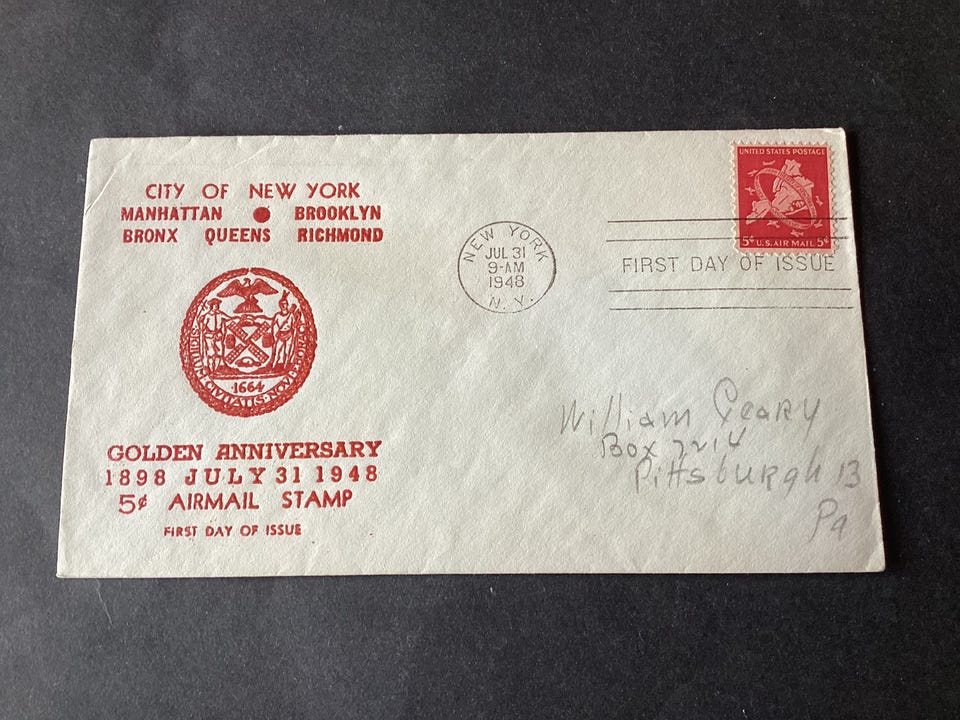 CITY OF NEW YORK
MANHATTAN BROOKLYN
BRONX QUEENS RICHMOND
1664
GOLDEN ANNIVERSARY
1898 JULY 31 1948
5¢ AIRMAIL STAMP
FIRST DAY OF ISSUE
NEW YORK
JUL 31
9-AM
1948
N.Y.
UNITED STATES POSTAGE
5¢ U.S. AIR MAIL 5¢
FIRST DAY OF ISSUE
William Geary
Box 2214
Pittsburgh 13
Pa